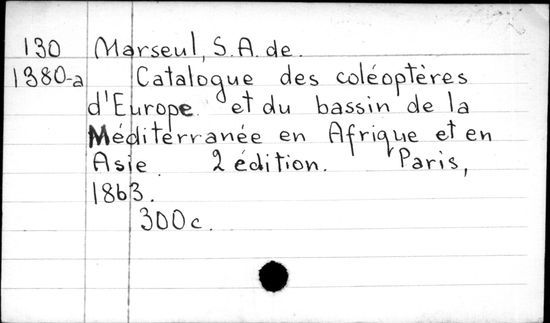 130 Marseul, S.A. de.
1380-a Catalogue des coléoptères
d'Europe et du bassin de la
Méditerranée en Afrique et en
Asie. 2 édition. Paris,
1863.
300c.